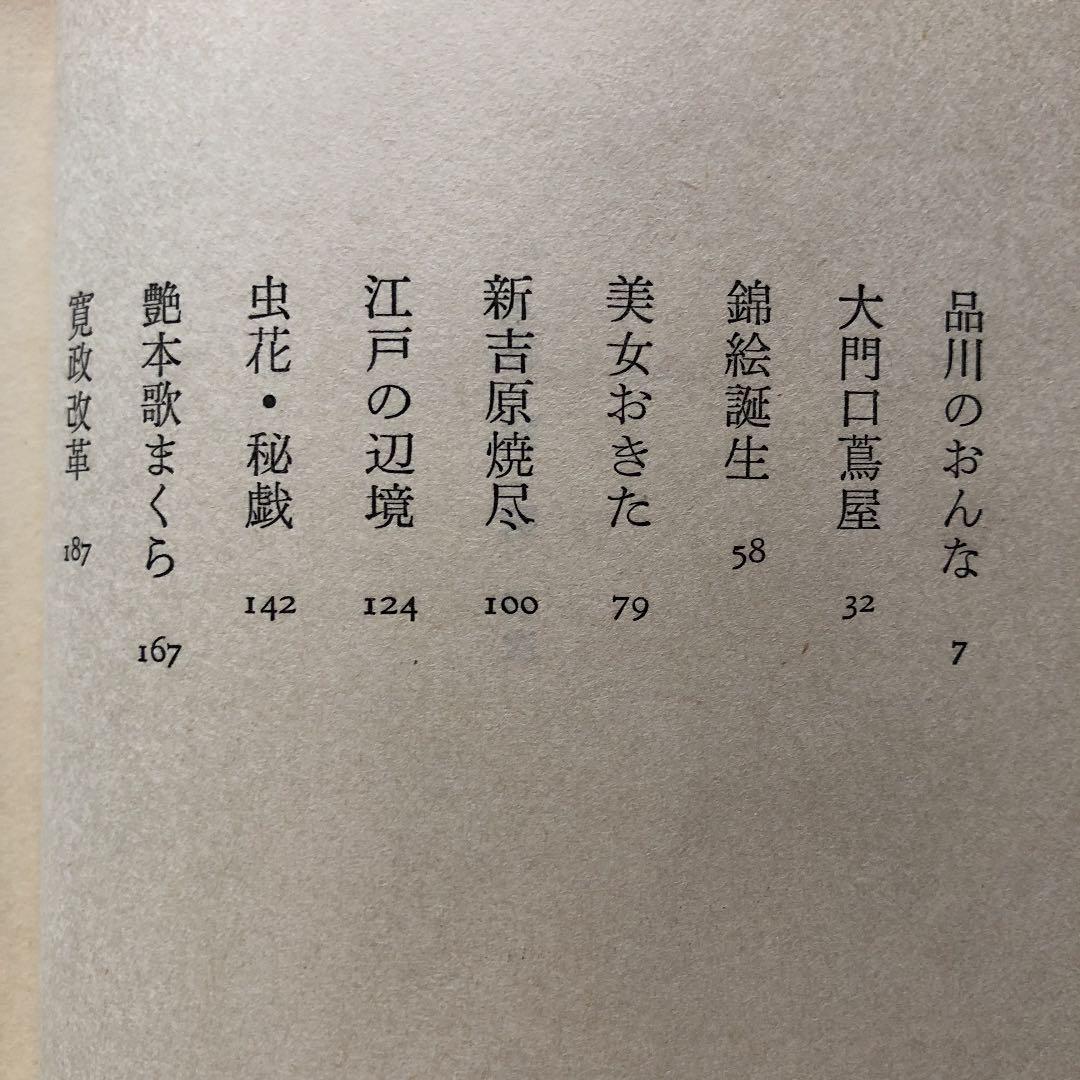 品川のおんな 7
大門口蔦屋 32
錦絵誕生 58
美女おきた 79
新吉原焼尽 100
江戸の辺境 124
虫花・秘戯 142
艶本歌まくら 167
寛政改革 187